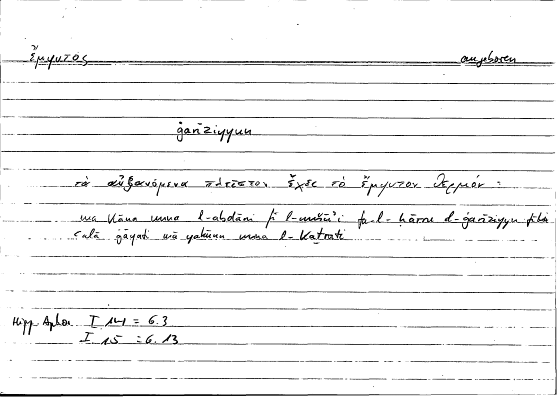 ἔμφυτος angeboren
ġarīziyyun
τὰ αὐξανόμενα πλεῖστον ἔχει τὸ ἔμφυτον θερμόν :
mā kāna mina l-abdāni fī l-nušūʾi fa-l-ḥārru l-ġarīziyyu fīhi
ʿalā ġāyati mā yakūnu mina l-kaṯrati
Hipp Aphor. I 14 = 6.3
I 15 = 6.13